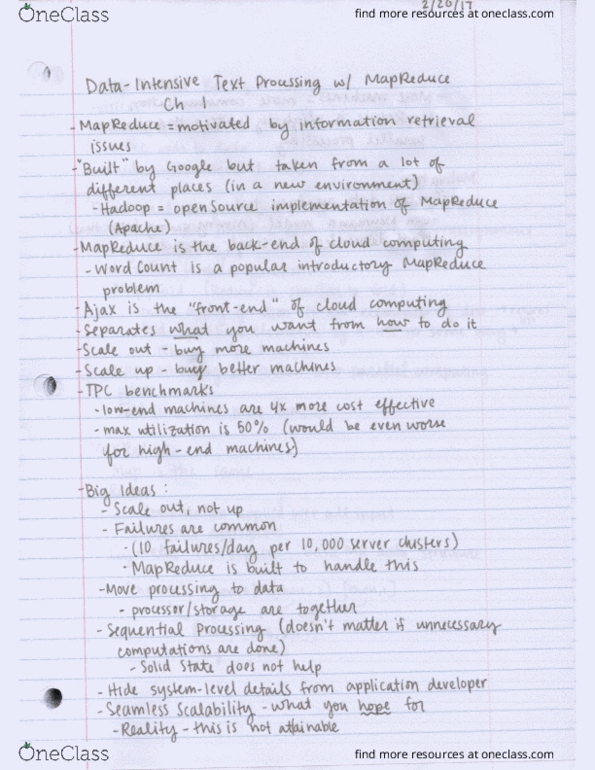 2/20/17
OneClass
find more resources at oneclass.com
Data-Intensive Text Processing w/ MapReduce
Ch 1
- MapReduce = motivated by information retrieval
issues
- "Built" by Google but taken from a lot of
different places (in a new environment)
- Hadoop = open source implementation of MapReduce
(Apache)
- MapReduce is the back-end of cloud computing
- Word Count is a popular introductory MapReduce
problem
- Ajax is the "front-end" of cloud computing
- Separates what you want from how to do it
- Scale out - buy more machines
- Scale up - buy better machines
- TPC benchmarks
- low-end machines are 4x more cost effective
- max utilization is 50% (would be even worse
for high-end machines)
- Big Ideas:
- Scale out, not up
- Failures are common
- (10 failures/day per 10,000 server clusters)
- MapReduce is built to handle this
- Move processing to data
- processor/storage are together
- Sequential Processing (doesn't matter if unnecessary
computations are done)
- Solid State does not help
- Hide system-level details from application developer
- Seamless Scalability - what you hope for
- Reality - this is not attainable
OneClass
find more resources at oneclass.com